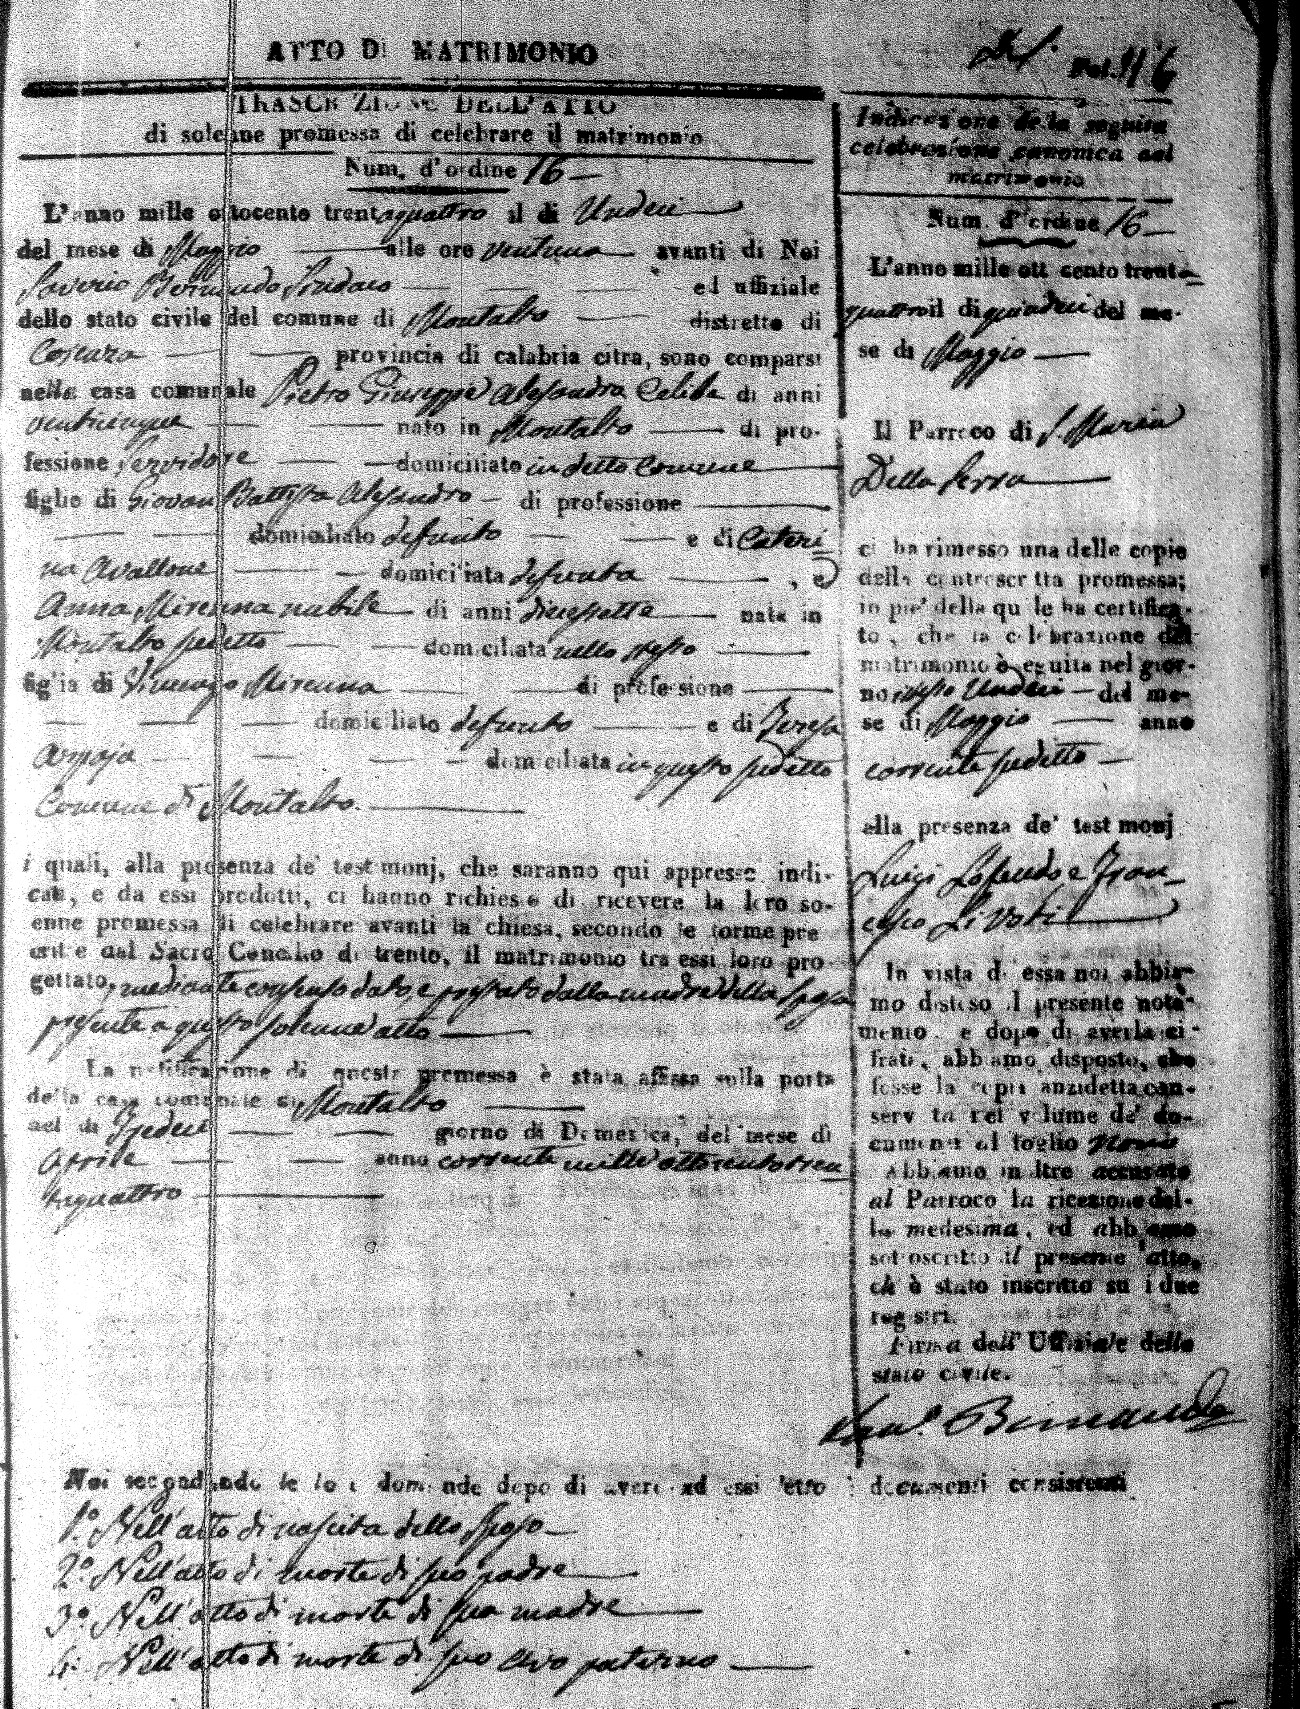 ATTO DI MATRIMONIO
Fol. 116
TRASCRIZIONE DELL'ATTO
di solenne promessa di celebrare il matrimonio
Num. d'ordine 16
L'anno mille ottocento trentaquattro il di Undeci
del mese di Maggio alle ore ventuna avanti di Noi
Saverio Bernaudo Sindaco ed uffiziale
dello stato civile del comune di Montalto distretto di
Cosenza provincia di calabria citra, sono comparsi
nella casa comunale Pietro Giuseppe Alesandro Celibe di anni
venticinque nato in Montalto di pro-
fessione Servidore domiciliato in detto Comune
figlio di Giovan Battista Alesandro di professione
domiciliato defunto e di Cateri
na Avallone domiciliata defunta , e
Anna Mirenna nubile di anni diecisette nata in
Montalto sudetto domiciliata nello stesso
figlia di Mirenna di professione
domiciliato defunto e di Teresa
domiciliata in questo sudetto
Comune di Montalto.
i quali, alla presenza de' testimonj, che saranno qui appresso indi-
cati, e da essi prodotti, ci hanno richiesto di ricevere la loro so-
enne promessa di celebrare avanti la chiesa, secondo le forme pre
critte dal Sacro Concilio di trento, il matrimonio tra essi loro pro
gettato, mediante consenso dato, e prestato dalla madre della sposa
presente a questo solenne atto
La notificazione di questa promessa è stata affissa sulla porta
della casa comunale di Montalto
nel di Tredeci giorno di Domenica, del mese di
Aprile anno corrente mille ottocentotren
taquattro
Noi secondando le loro domande dopo di avere ad essi letto i documenti consistenti
1.º Nell'atto di nascita dello Sposo
2.º Nell'atto di morte di suo padre
3.º Nell'atto di morte di sua madre
4.º Nell'atto di morte di suo avo paterno
Indicazione della seguita
celebrazione canonica del
matrimonio
Num. d'ordine 16
L'anno mille ottocento trenta
quattro il di quindeci del me-
se di Maggio
Il Parroco di S. Maria
Della Serra
ci ha rimesso una delle copie
della controscritta promessa;
in piè della quale ha certifica-
to, che la celebrazione del
matrimonio è seguita nel gior-
no stesso Undeci del me-
se di Maggio anno
corrente sudetto
alla presenza de' testimonj
Luigi e Fran
cesco Li Voti
In vista di essa noi abbia-
mo disteso il presente nota-
mento, e dopo di averla ci-
frata, abbiamo disposto, che
fosse la copia anzidetta con-
servata nel volume de' do-
cumenti al foglio
Abbiamo inoltre accusato
al Parroco la ricezione del-
la medesima, ed abbiamo
sottoscritto il presente atto,
ch'è stato inscritto su i due
registri.
Firma dell'Uffiziale dello
stato civile.
Sav.º Bernaudo